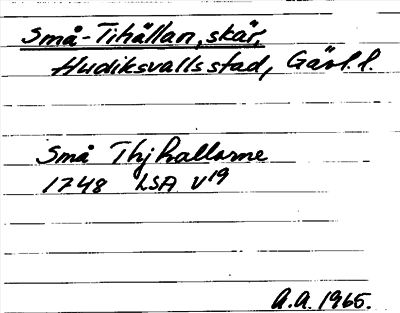 Små-Tihällan, skär,
Hudiksvalls stad, Gävl. l.
Små Thjhallarne
1748 LSA V19
A.A. 1965.